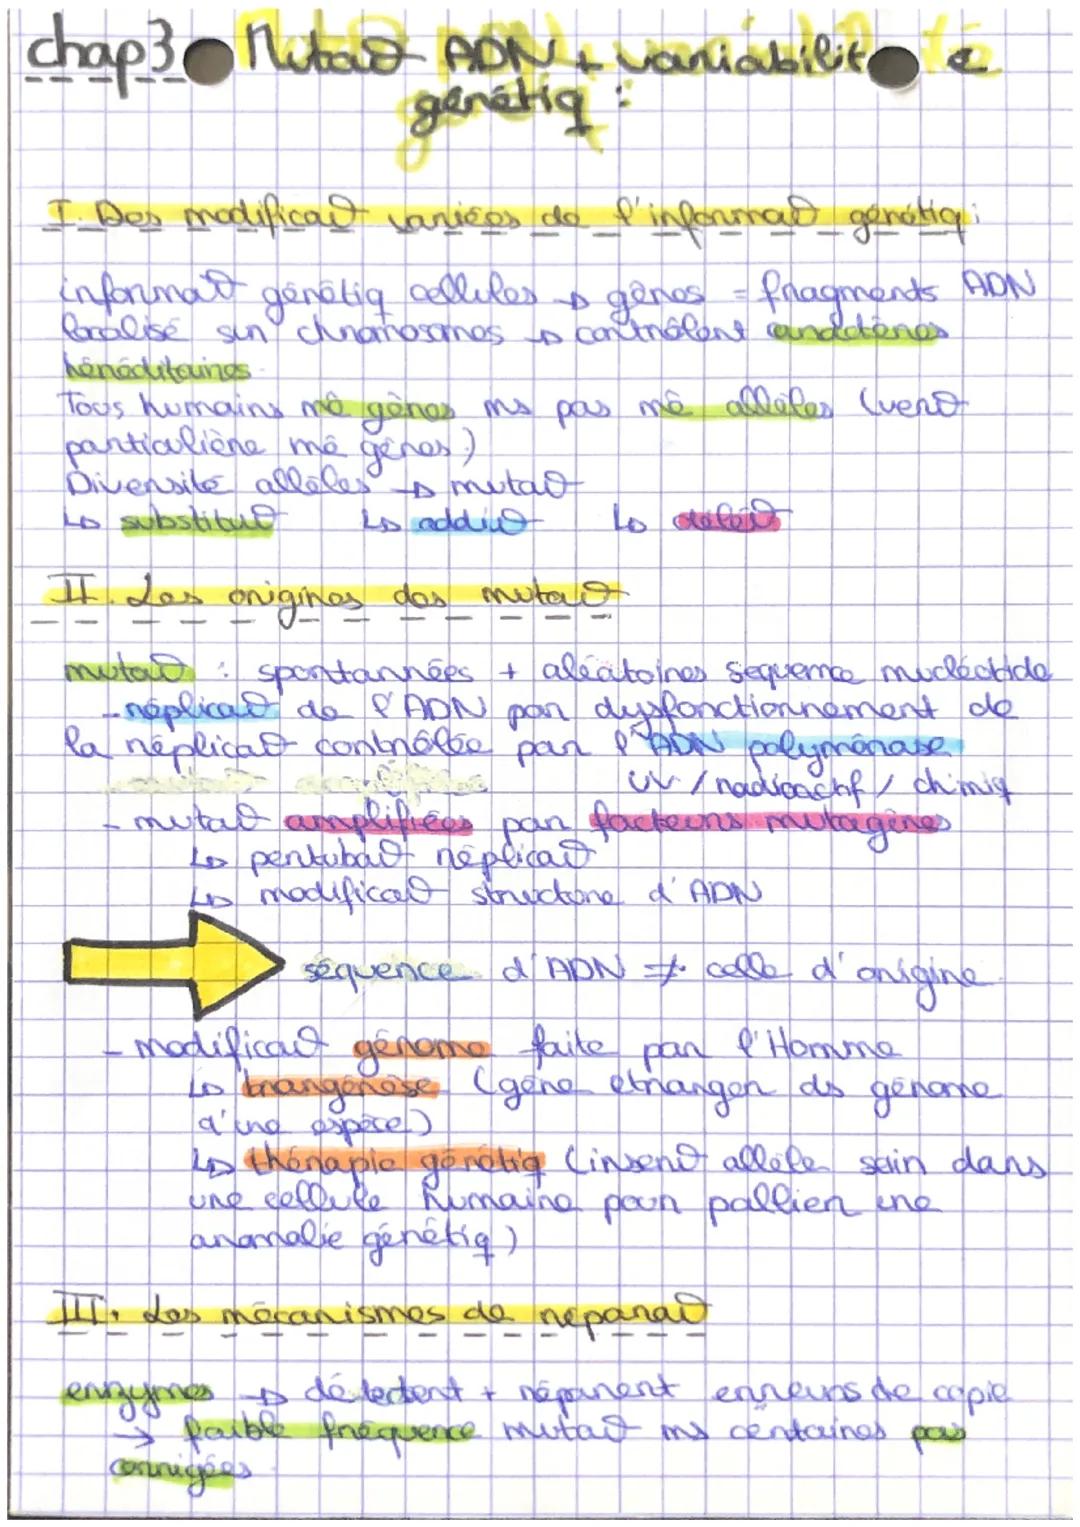 chap3 Mutat° ADN + variabilité
génétiq :
I. Des modificat° variées de l'informat° génétiq :
informat° génétiq cellules → gènes = fragments ADN
localisé sur chromosomes → contrôlent caractères
héréditaires
Tous humains mê gènes ms pas mê allèles (vers°
particulière mê gènes)
Diversité allèles → mutat°
↳ substitut° ↳ addit° ↳ délét°
II. Les origines des mutat°
mutat° : spontannées + aléatoires séquence nucléotide
- réplicat° de l'ADN par dysfonctionnement de
la réplicat° contrôlée par l'ADN polymérase
UV / radioactif / chimiq
- mutat° amplifiées par facteurs mutagènes
↳ pertubat° réplicat°
↳ modificat° structure d'ADN
séquence d'ADN ≠ celle d'origine
- modificat° génome faite par l'Homme
↳ trangénèse (gène étranger ds génome
d'une espèce)
↳ thérapie génétiq (insert° allèle sain dans
une cellule humaine pour pallier une
anomalie génétiq)
III. Les mécanismes de réparat°
enzymes → détectent + réparent erreurs de copie
→ faible fréquence mutat° ms certaines pas
corrigées